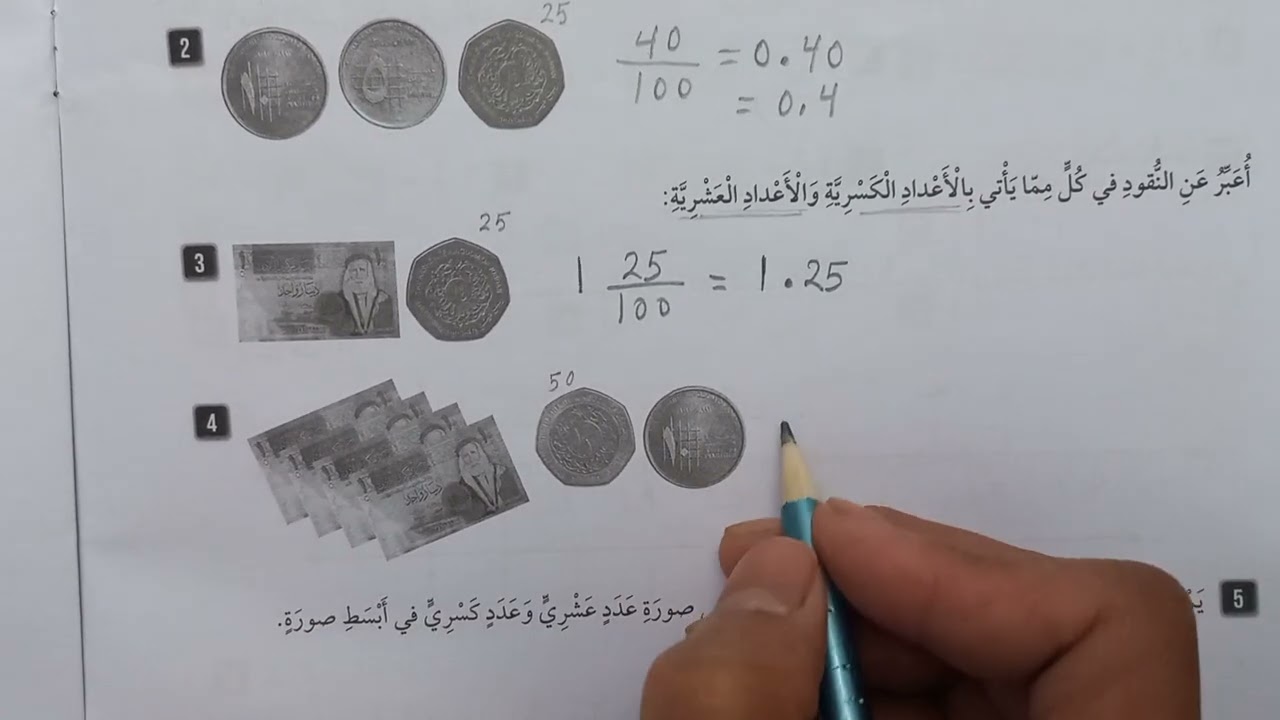 2
25
40/100 = 0.40
= 0.4
أُعَبِّرُ عَنِ النُّقودِ في كُلٍّ مِمّا يَأْتي بِالْأَعْدادِ الْكَسْرِيَّةِ وَالْأَعْدادِ الْعَشْرِيَّةِ:
3
دينار واحد
25
1 25/100 = 1.25
4
دينار واحد
50
5
صورَةِ عَدَدٍ عَشْرِيٍّ وَعَدَدٍ كَسْرِيٍّ في أَبْسَطِ صورَةٍ.